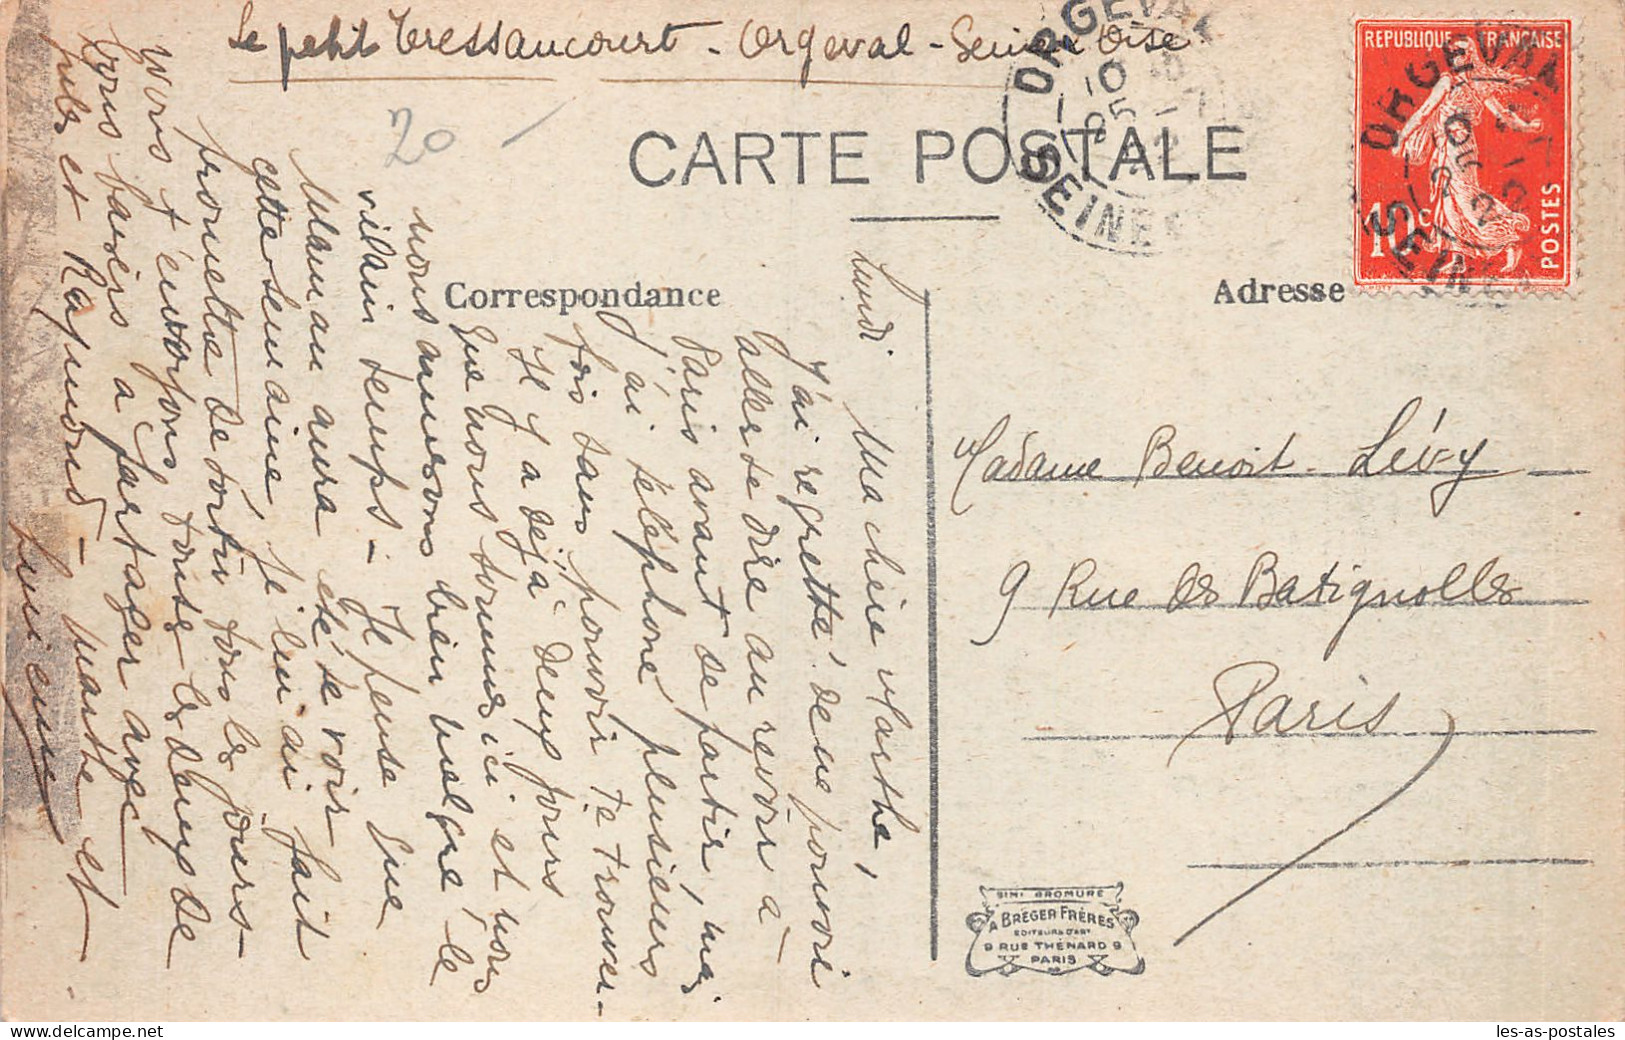 Le petit Tressancourt - Orgeval - Seine et Oise
20 -
CARTE POSTALE
Correspondance
Adresse
REPUBLIQUE FRANÇAISE
10c
POSTES
ORGEVAL
10
25 -7
22
SEINE
ORGEVAL
10
25 -7
22
SEINE
Lundi
Ma chère Marthe,
J'ai regretté de ne pouvoir
aller te dire au revoir à
Paris avant de partir, mais
j'ai téléphoné plusieurs
fois sans pouvoir te trouver -
Il y a déjà deux jours
que nous sommes ici et nous
nous amusons bien malgré le
vilain temps - Je pense que
Maman aura été te voir
cette semaine, je lui ai fait
promettre de sortir tous les jours -
Nous t'envoyons toutes les deux de
bons baisers à partager avec
Jules et Raymond - Marthe et
Madame Benoit-Lévy
9 Rue des Batignolles
Paris
SIMI BROMURE
A BRÉGER FRÈRES
EDITEURS D'ART
9 RUE THÉNARD 9
PARIS
les-as-postales